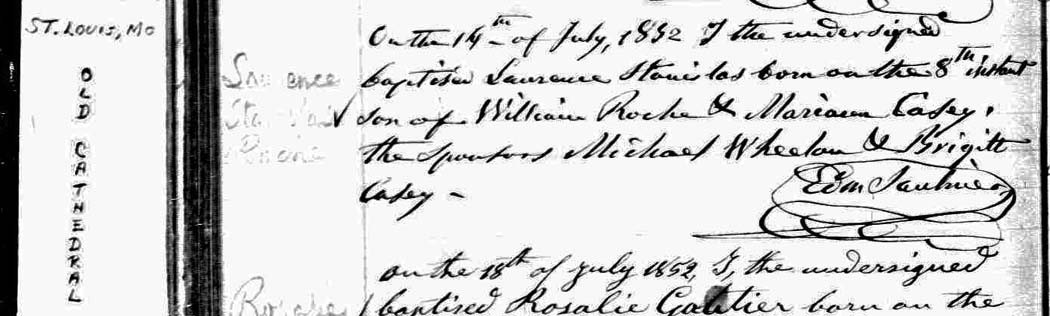 ST. LOUIS, MO
OLD CATHEDRAL
On the 14th of July, 1852 I the undersigned
baptised Laurence Stanislas born on the 8th instant
son of William Roche & Mariann Casey,
the sponsors Michael Wheelan & Brigitt
Casey -
Edm Saulnier
on the 18th of July 1852, I, the undersigned
baptised Rosalie Galtier born on the